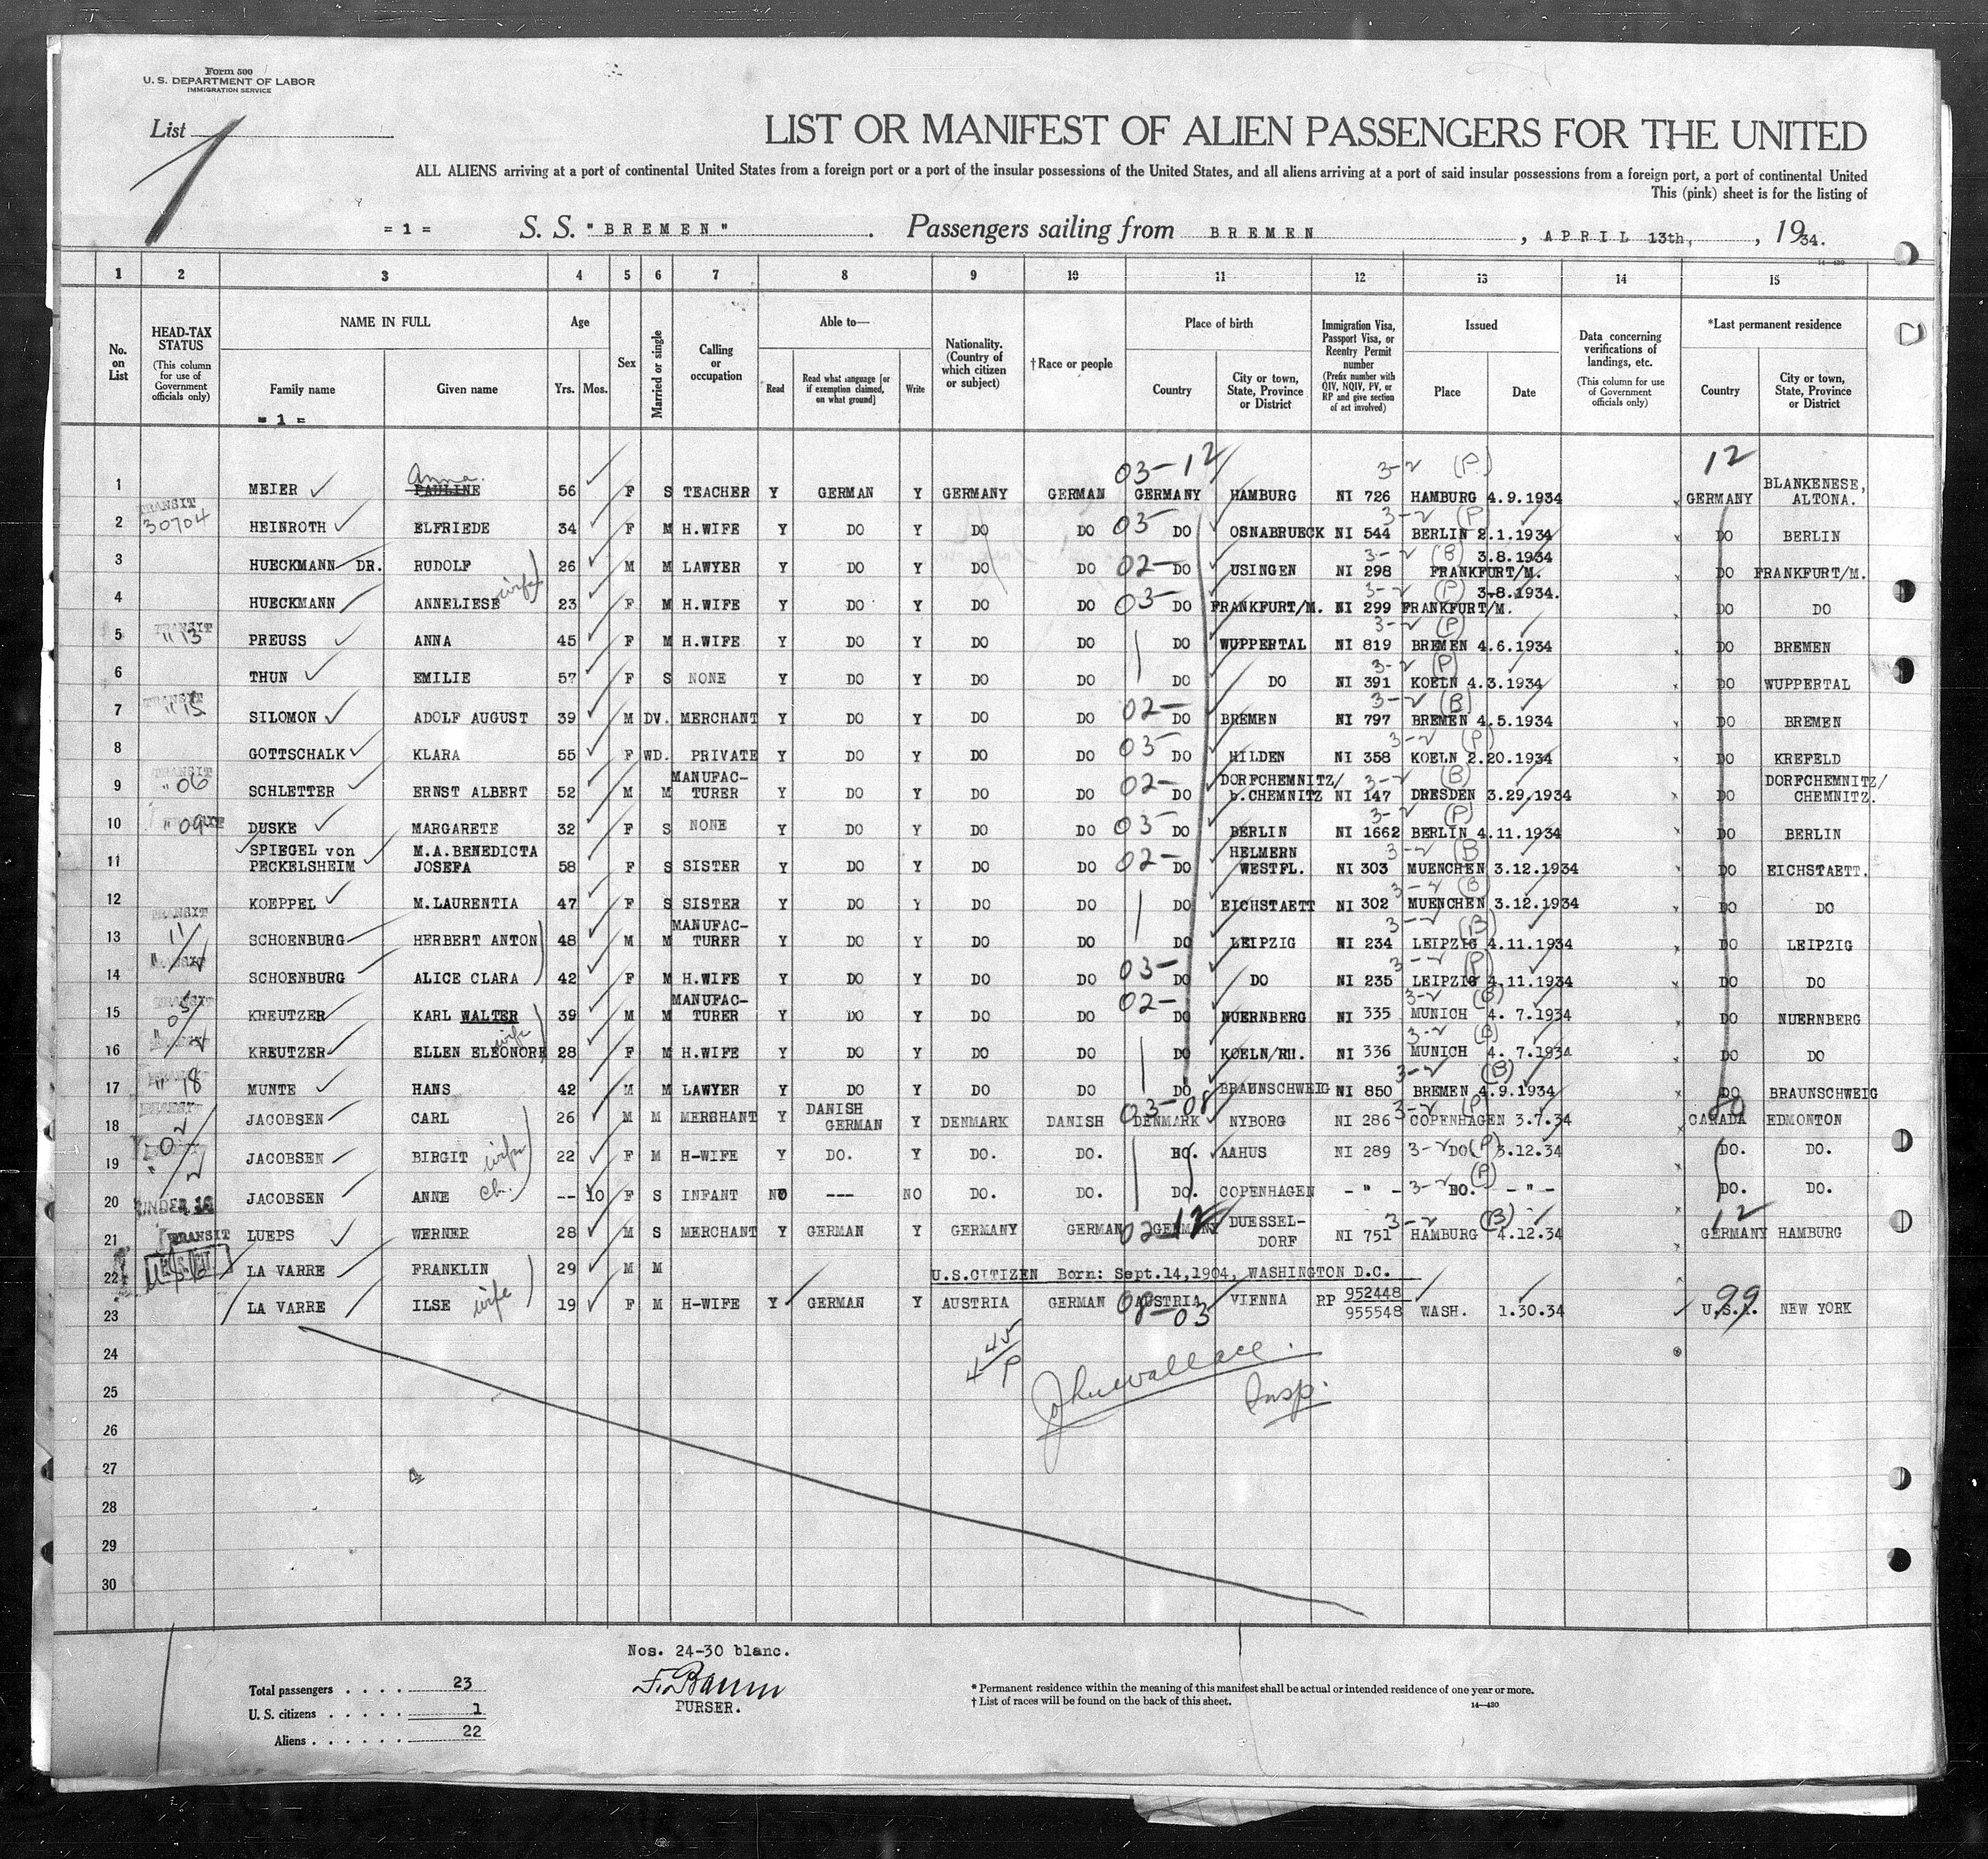 Form 500
U. S. DEPARTMENT OF LABOR
IMMIGRATION SERVICE
List 1
LIST OR MANIFEST OF ALIEN PASSENGERS FOR THE UNITED
ALL ALIENS arriving at a port of continental United States from a foreign port or a port of the insular possessions of the United States, and all aliens arriving at a port of said insular possessions from a foreign port, a port of continental United
This (pink) sheet is for the listing of
= 1 = S. S. "BREMEN" . Passengers sailing from BREMEN , APRIL 13th, , 1934.
14—430
1 2 3 4 5 6 7 8 9 10 11 12 13 14 15
No. on List
HEAD-TAX STATUS (This column for use of Government officials only)
NAME IN FULL
Family name Given name
= 1 =
Age
Yrs. Mos.
Sex
Married or single
Calling or occupation
Able to—
Read Read what language [or if exemption claimed, on what ground] Write
Nationality. (Country of which citizen or subject)
†Race or people
Place of birth
Country City or town, State, Province or District
Immigration Visa, Passport Visa, or Reentry Permit number (Prefix number with QIV, NQIV, PV, or RP and give section of act involved)
Issued
Place Date
Data concerning verifications of landings, etc. (This column for use of Government officials only)
*Last permanent residence
Country City or town, State, Province or District
Anna 03-12 3-2 (P) 12
1 MEIER PAULINE 56 F S TEACHER Y GERMAN Y GERMANY GERMAN GERMANY HAMBURG NI 726 HAMBURG 4.9.1934 GERMANY BLANKENESE, ALTONA.
TRANSIT 30704 03 3-2 (P)
2 HEINROTH ELFRIEDE 34 F M H.WIFE Y DO Y DO DO DO OSNABRUECK NI 544 BERLIN 2.1.1934 DO BERLIN
02- 3-2 (B)
3 HUECKMANN DR. RUDOLF 26 M M LAWYER Y DO Y DO DO DO USINGEN NI 298 FRANKFURT/M. 3.8.1934 DO FRANKFURT/M.
wife 03- 3-2 (P)
4 HUECKMANN ANNELIESE 23 F M H.WIFE Y DO Y DO DO DO FRANKFURT/M. NI 299 FRANKFURT/M. 3.8.1934. DO DO
TRANSIT " 13 3-2 (P)
5 PREUSS ANNA 45 F M H.WIFE Y DO Y DO DO DO WUPPERTAL NI 819 BREMEN 4.6.1934 DO BREMEN
3-2 (P)
6 THUN EMILIE 57 F S NONE Y DO Y DO DO DO DO NI 391 KOELN 4.3.1934 DO WUPPERTAL
TRANSIT " 15 02- 3-2 (B)
7 SILOMON ADOLF AUGUST 39 M DV. MERCHANT Y DO Y DO DO DO BREMEN NI 797 BREMEN 4.5.1934 DO BREMEN
03 3-2 (P)
8 GOTTSCHALK KLARA 55 F WD. PRIVATE Y DO Y DO DO DO HILDEN NI 358 KOELN 2.20.1934 DO KREFELD
TRANSIT " 06 02- 3-2 (B)
9 SCHLETTER ERNST ALBERT 52 M M MANUFAC-TURER Y DO Y DO DO DO DORFCHEMNITZ/ b.CHEMNITZ NI 147 DRESDEN 3.29.1934 DO DORFCHEMNITZ/ CHEMNITZ.
" 09 03 3-2 (P)
10 DUSKE MARGARETE 32 F S NONE Y DO Y DO DO DO BERLIN NI 1662 BERLIN 4.11.1934 DO BERLIN
02- 3-2 (B)
11 SPIEGEL von PECKELSHEIM M.A.BENEDICTA JOSEFA 58 F S SISTER Y DO Y DO DO DO HELMERN WESTFL. NI 303 MUENCHEN 3.12.1934 DO EICHSTAETT.
3-2 (B)
12 KOEPPEL M.LAURENTIA 47 F S SISTER Y DO Y DO DO DO EICHSTAETT NI 302 MUENCHEN 3.12.1934 DO DO
TRANSIT 11 3-2 (B)
13 SCHOENBURG HERBERT ANTON 48 M M MANUFAC-TURER Y DO Y DO DO DO LEIPZIG NI 234 LEIPZIG 4.11.1934 DO LEIPZIG
03- 3-2 (P)
14 SCHOENBURG ALICE CLARA 42 F M H.WIFE Y DO Y DO DO DO DO NI 235 LEIPZIG 4.11.1934 DO DO
TRANSIT 05 02- 3-2 (B)
15 KREUTZER KARL WALTER 39 M M MANUFAC-TURER Y DO Y DO DO DO NUERNBERG NI 335 MUNICH 4. 7.1934 DO NUERNBERG
wife 3-2 (B)
16 KREUTZER ELLEN ELEONORE 28 F M H.WIFE Y DO Y DO DO DO KOELN/RH. NI 336 MUNICH 4. 7.1934 DO DO
" 18 3-2 (B)
17 MUNTE HANS 42 M M LAWYER Y DO Y DO DO DO BRAUNSCHWEIG NI 850 BREMEN 4.9.1934 DO BRAUNSCHWEIG
03-08 3-2 (P)
18 JACOBSEN CARL 26 M M MERCHANT Y DANISH GERMAN Y DENMARK DANISH DENMARK NYBORG NI 286 COPENHAGEN 3.7.34 CANADA EDMONTON
19 JACOBSEN BIRGIT wife 22 F M H-WIFE Y DO. Y DO. DO. DO. AAHUS NI 289 3-2 DO (P) 3.12.34 DO. DO.
UNDER 16
20 JACOBSEN ANNE ch. -- 10 F S INFANT NO --- NO DO. DO. DO. COPENHAGEN - " - 3-2 DO. (P) - " - DO. DO.
TRANSIT 02-12 3-2 (B) 12
21 LUEPS WERNER 28 M S MERCHANT Y GERMAN Y GERMANY GERMAN GERMANY DUESSEL-DORF NI 751 HAMBURG 4.12.34 GERMANY HAMBURG
22 LA VARRE FRANKLIN 29 M M U.S.CITIZEN Born: Sept.14,1904, WASHINGTON D.C.
23 LA VARRE ILSE wife 19 F M H-WIFE Y GERMAN Y AUSTRIA GERMAN AUSTRIA 08-03 VIENNA RP 952448 955548 WASH. 1.30.34 U.S.A. 99 NEW YORK
24
John Wallace.
25
Insp.
26
27
28
29
30
Nos. 24-30 blanc.
Total passengers . . . . 23
U. S. citizens . . . . . 1
Aliens . . . . . . 22
F. Baum
PURSER.
* Permanent residence within the meaning of this manifest shall be actual or intended residence of one year or more.
† List of races will be found on the back of this sheet.
14—430